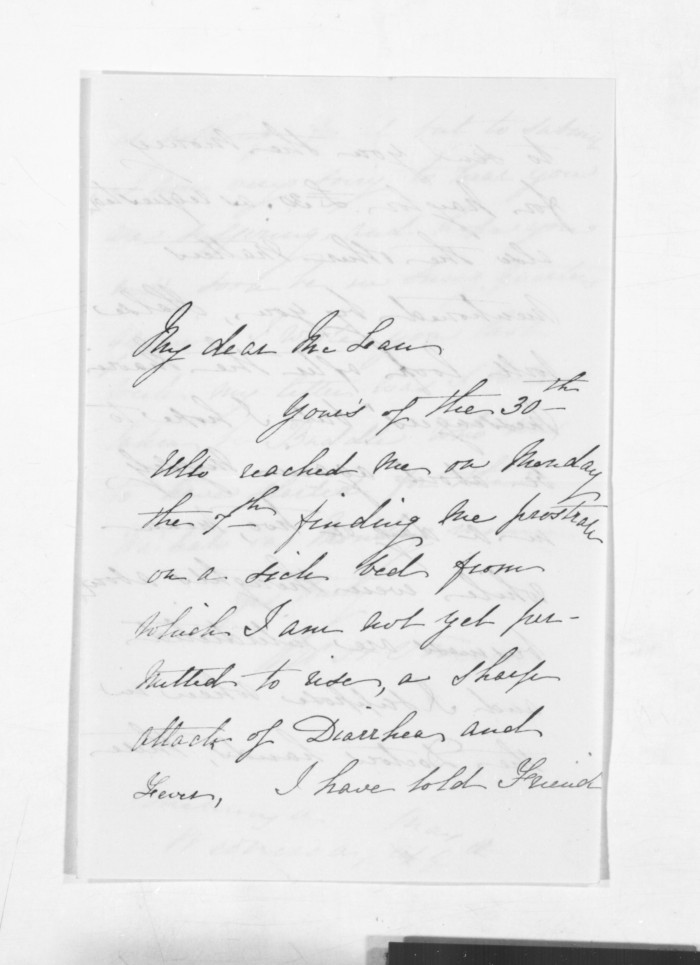 My dear McLean
Yours of the 30th
Ulto reached me on Monday
the 7th finding me prostrate
on a sick bed from
which I am not yet per-
mitted to rise, a sharp
attack of Diarrhea and
Fever, I have told Friend